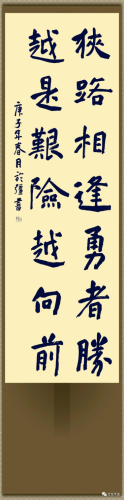 狹路相逢勇者勝
越是艱險越向前
庚子年春月於疆書